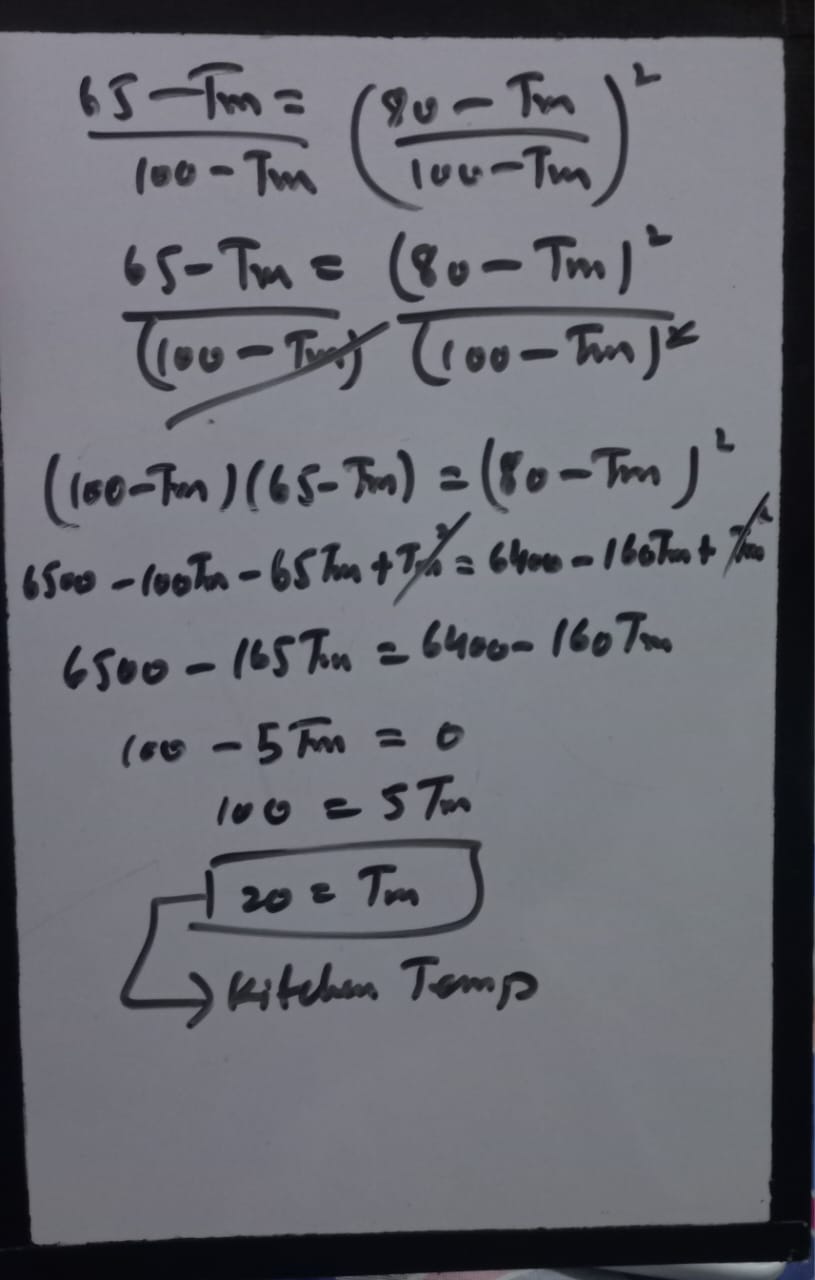 65 - Tm / 100 - Tm = (80 - Tm / 100 - Tm)²
65 - Tm / (100 - Tm) = (80 - Tm)² / (100 - Tm)²
(100 - Tm)(65 - Tm) = (80 - Tm)²
6500 - 100Tm - 65Tm + Tm² = 6400 - 160Tm + Tm²
6500 - 165Tm = 6400 - 160Tm
100 - 5Tm = 0
100 = 5Tm
20 = Tm
→ Kitchen Temp